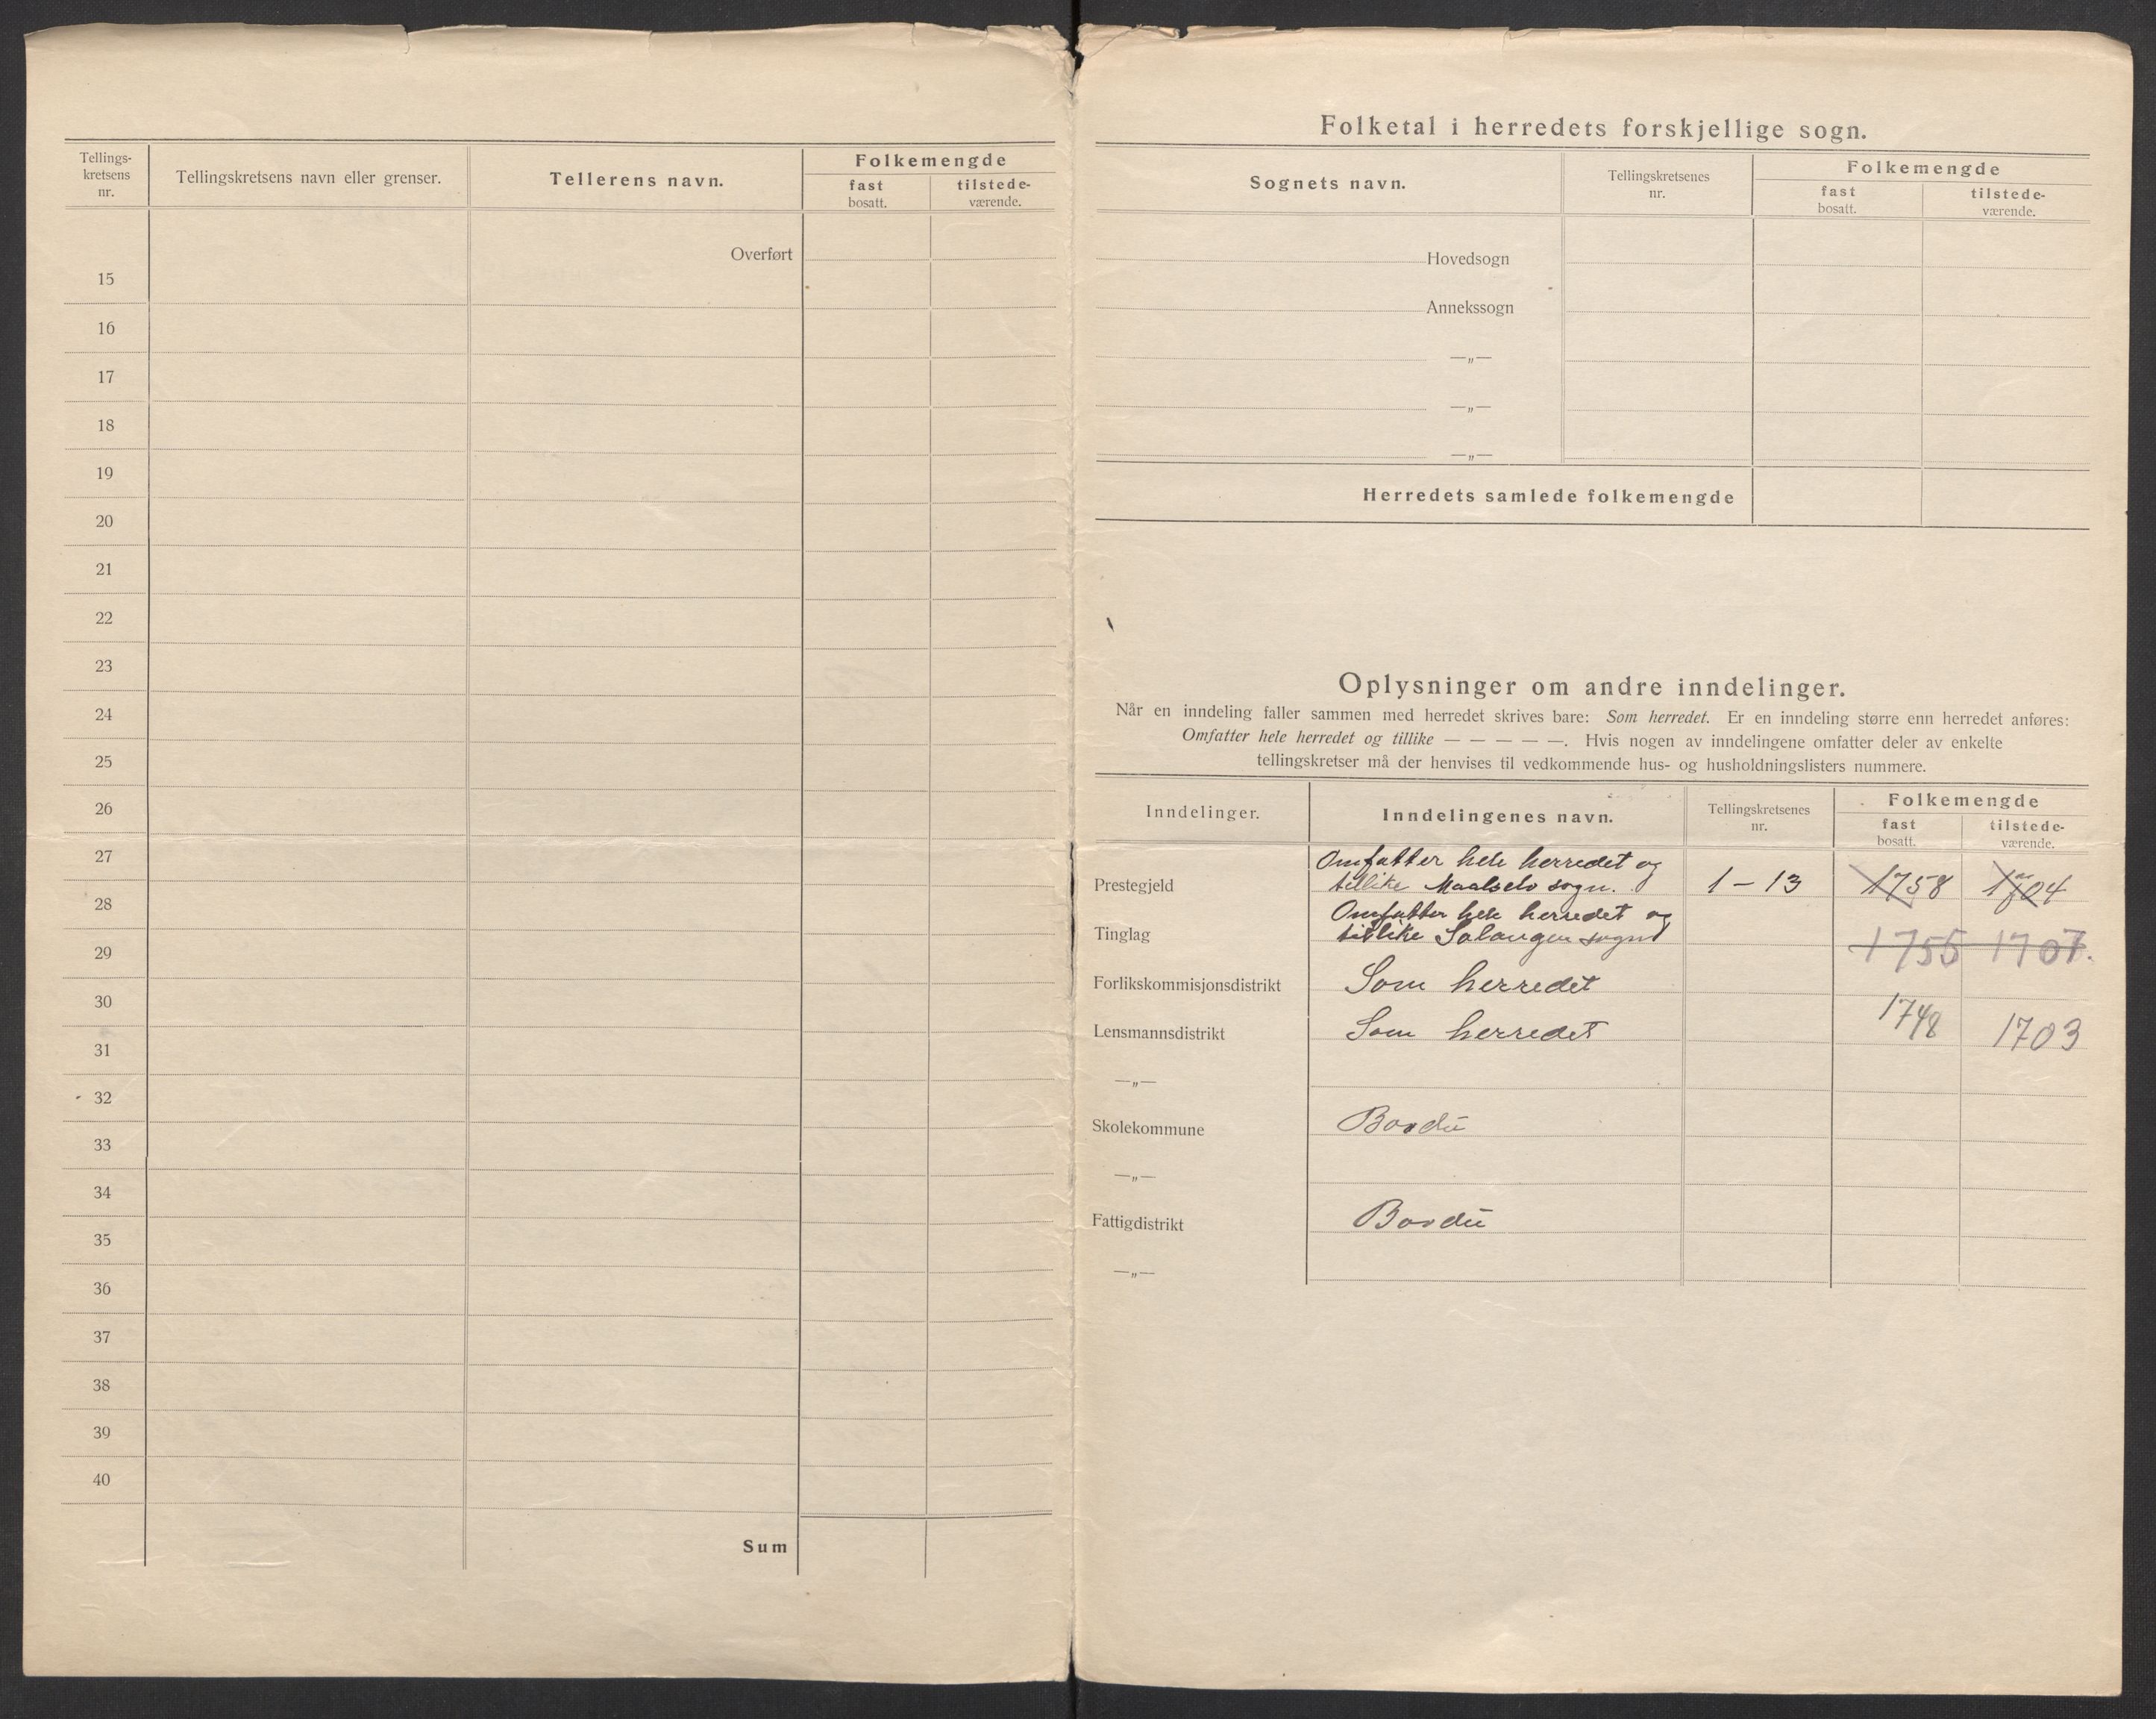 Tellings-
kretsens
nr.
Tellingskretsens navn eller grenser.
Tellerens navn.
Folkemengde
fast
bosatt.
tilstede-
værende.
Overført
15
16
17
18
19
20
21
22
23
24
25
26
27
28
29
30
31
32
33
34
35
36
37
38
39
40
Sum
Folketal i herredets forskjellige sogn.
Sognets navn.
Tellingskretsenes
nr.
Folkemengde
fast
bosatt.
tilstede-
værende.
Hovedsogn
Annekssogn
—„—
—„—
—„—
Herredets samlede folkemengde
Oplysninger om andre inndelinger.
Når en inndeling faller sammen med herredet skrives bare: Som herredet. Er en inndeling større enn herredet anføres:
Omfatter hele herredet og tillike — — — — —. Hvis nogen av inndelingene omfatter deler av enkelte
tellingskretser må der henvises til vedkommende hus- og husholdningslisters nummere.
Inndelinger.
Inndelingenes navn.
Tellingskretsenes
nr.
Folkemengde
fast
bosatt.
tilstede-
værende.
Omfatter hele herredet og
Prestegjeld tillike Maalselv sogn. 1 – 13 1758 1704
Omfatter hele herredet og
Tinglag tillike Salangen sogn
1755 1707.
Forlikskommisjonsdistrikt Som herredet
Lensmannsdistrikt Som herredet 1748 1703
—„—
Skolekommune Bardu
—„—
Fattigdistrikt Bardu
—„—